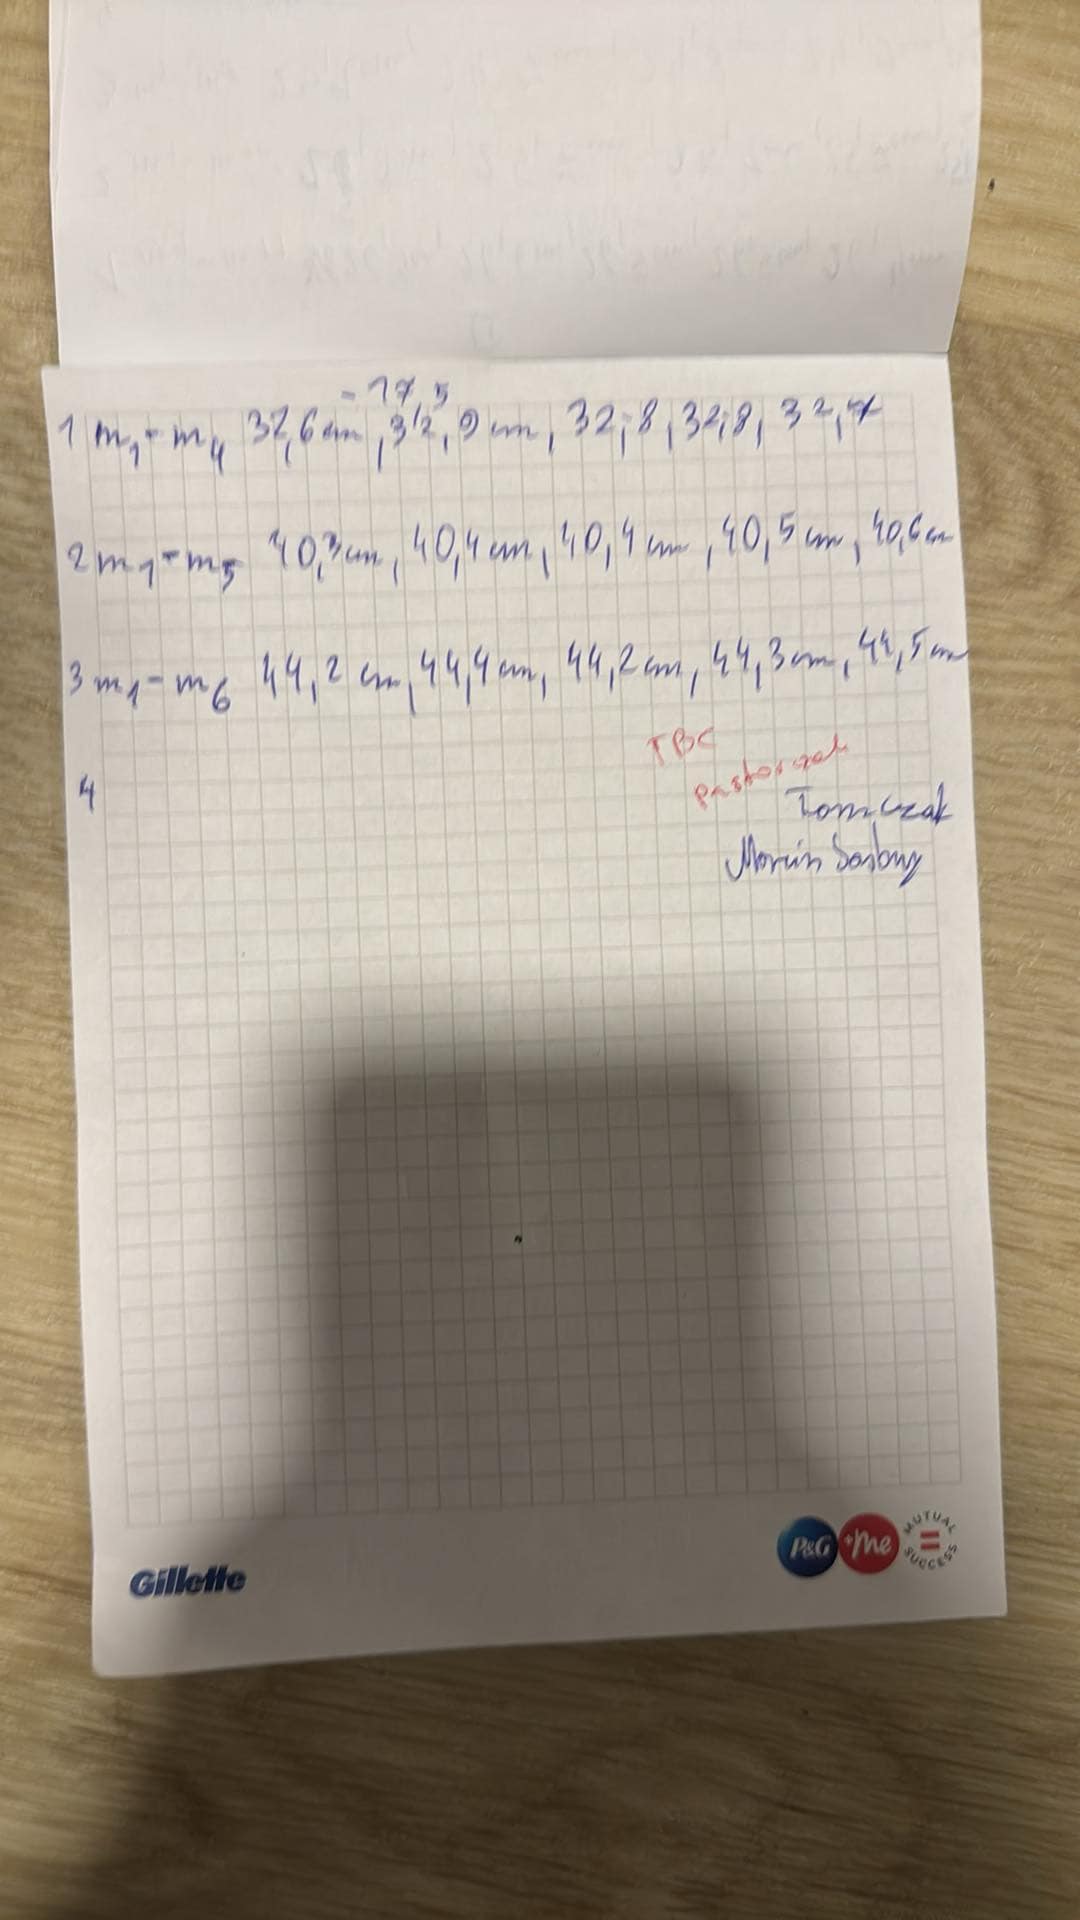 - 17,5
1 m1 - m4 32,6 cm, 32,9 cm, 32,8, 32,8, 32,7
2 m1 - m5 40,3 cm, 40,4 cm, 40,4 cm, 40,5 cm, 40,6 cm
3 m1 - m6 44,2 cm, 44,4 cm, 44,2 cm, 44,3 cm, 44,5 cm
TBC
Pastorczak
4
Tomczak
Marcin
P&G +me MUTUAL SUCCESS
Gillette